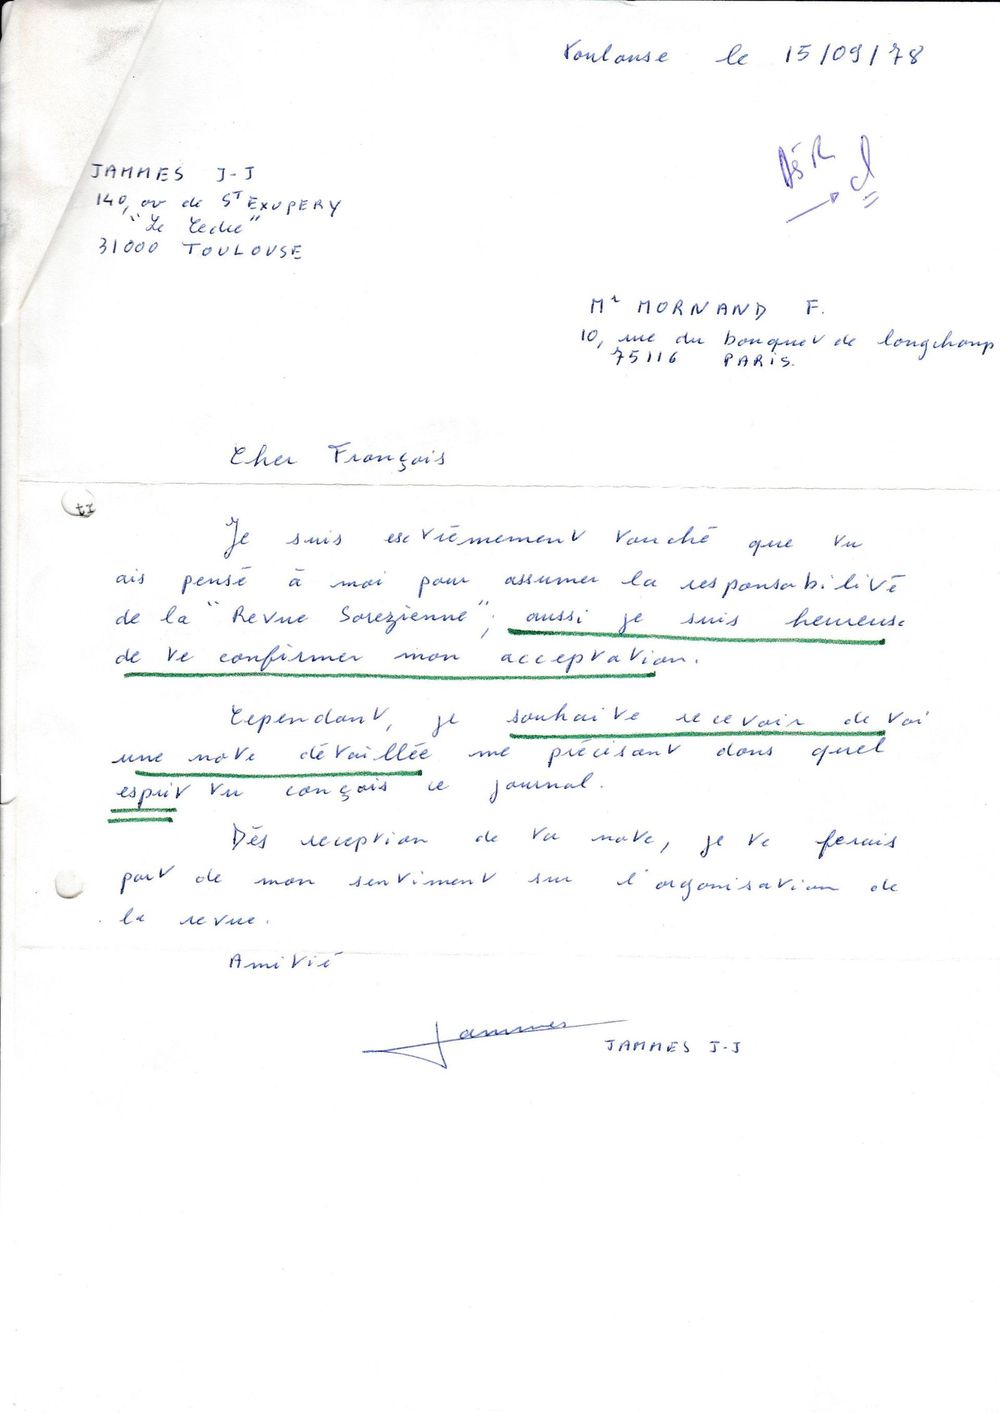 Toulouse le 15/09/78
JAMMES J-J
140, av de ST EXUPERY
"Le Cedre"
31000 TOULOUSE
Mr MORNAND F.
10, rue du bouquet de longchamp
75116 PARIS.
Cher François
Je suis extrêmement touché que tu
ais pensé à moi pour assumer la responsabilité
de la "Revue Sorezienne"; aussi je suis heureux
de te confirmer mon acceptation.
Cependant, je souhaite recevoir de toi
une note détaillée me précisant dans quel
esprit tu conçais ce journal.
Dès reception de ta note, je te ferais
part de mon sentiment sur l'organisation de
la revue.
Amitié
Jammes
JAMMES J-J